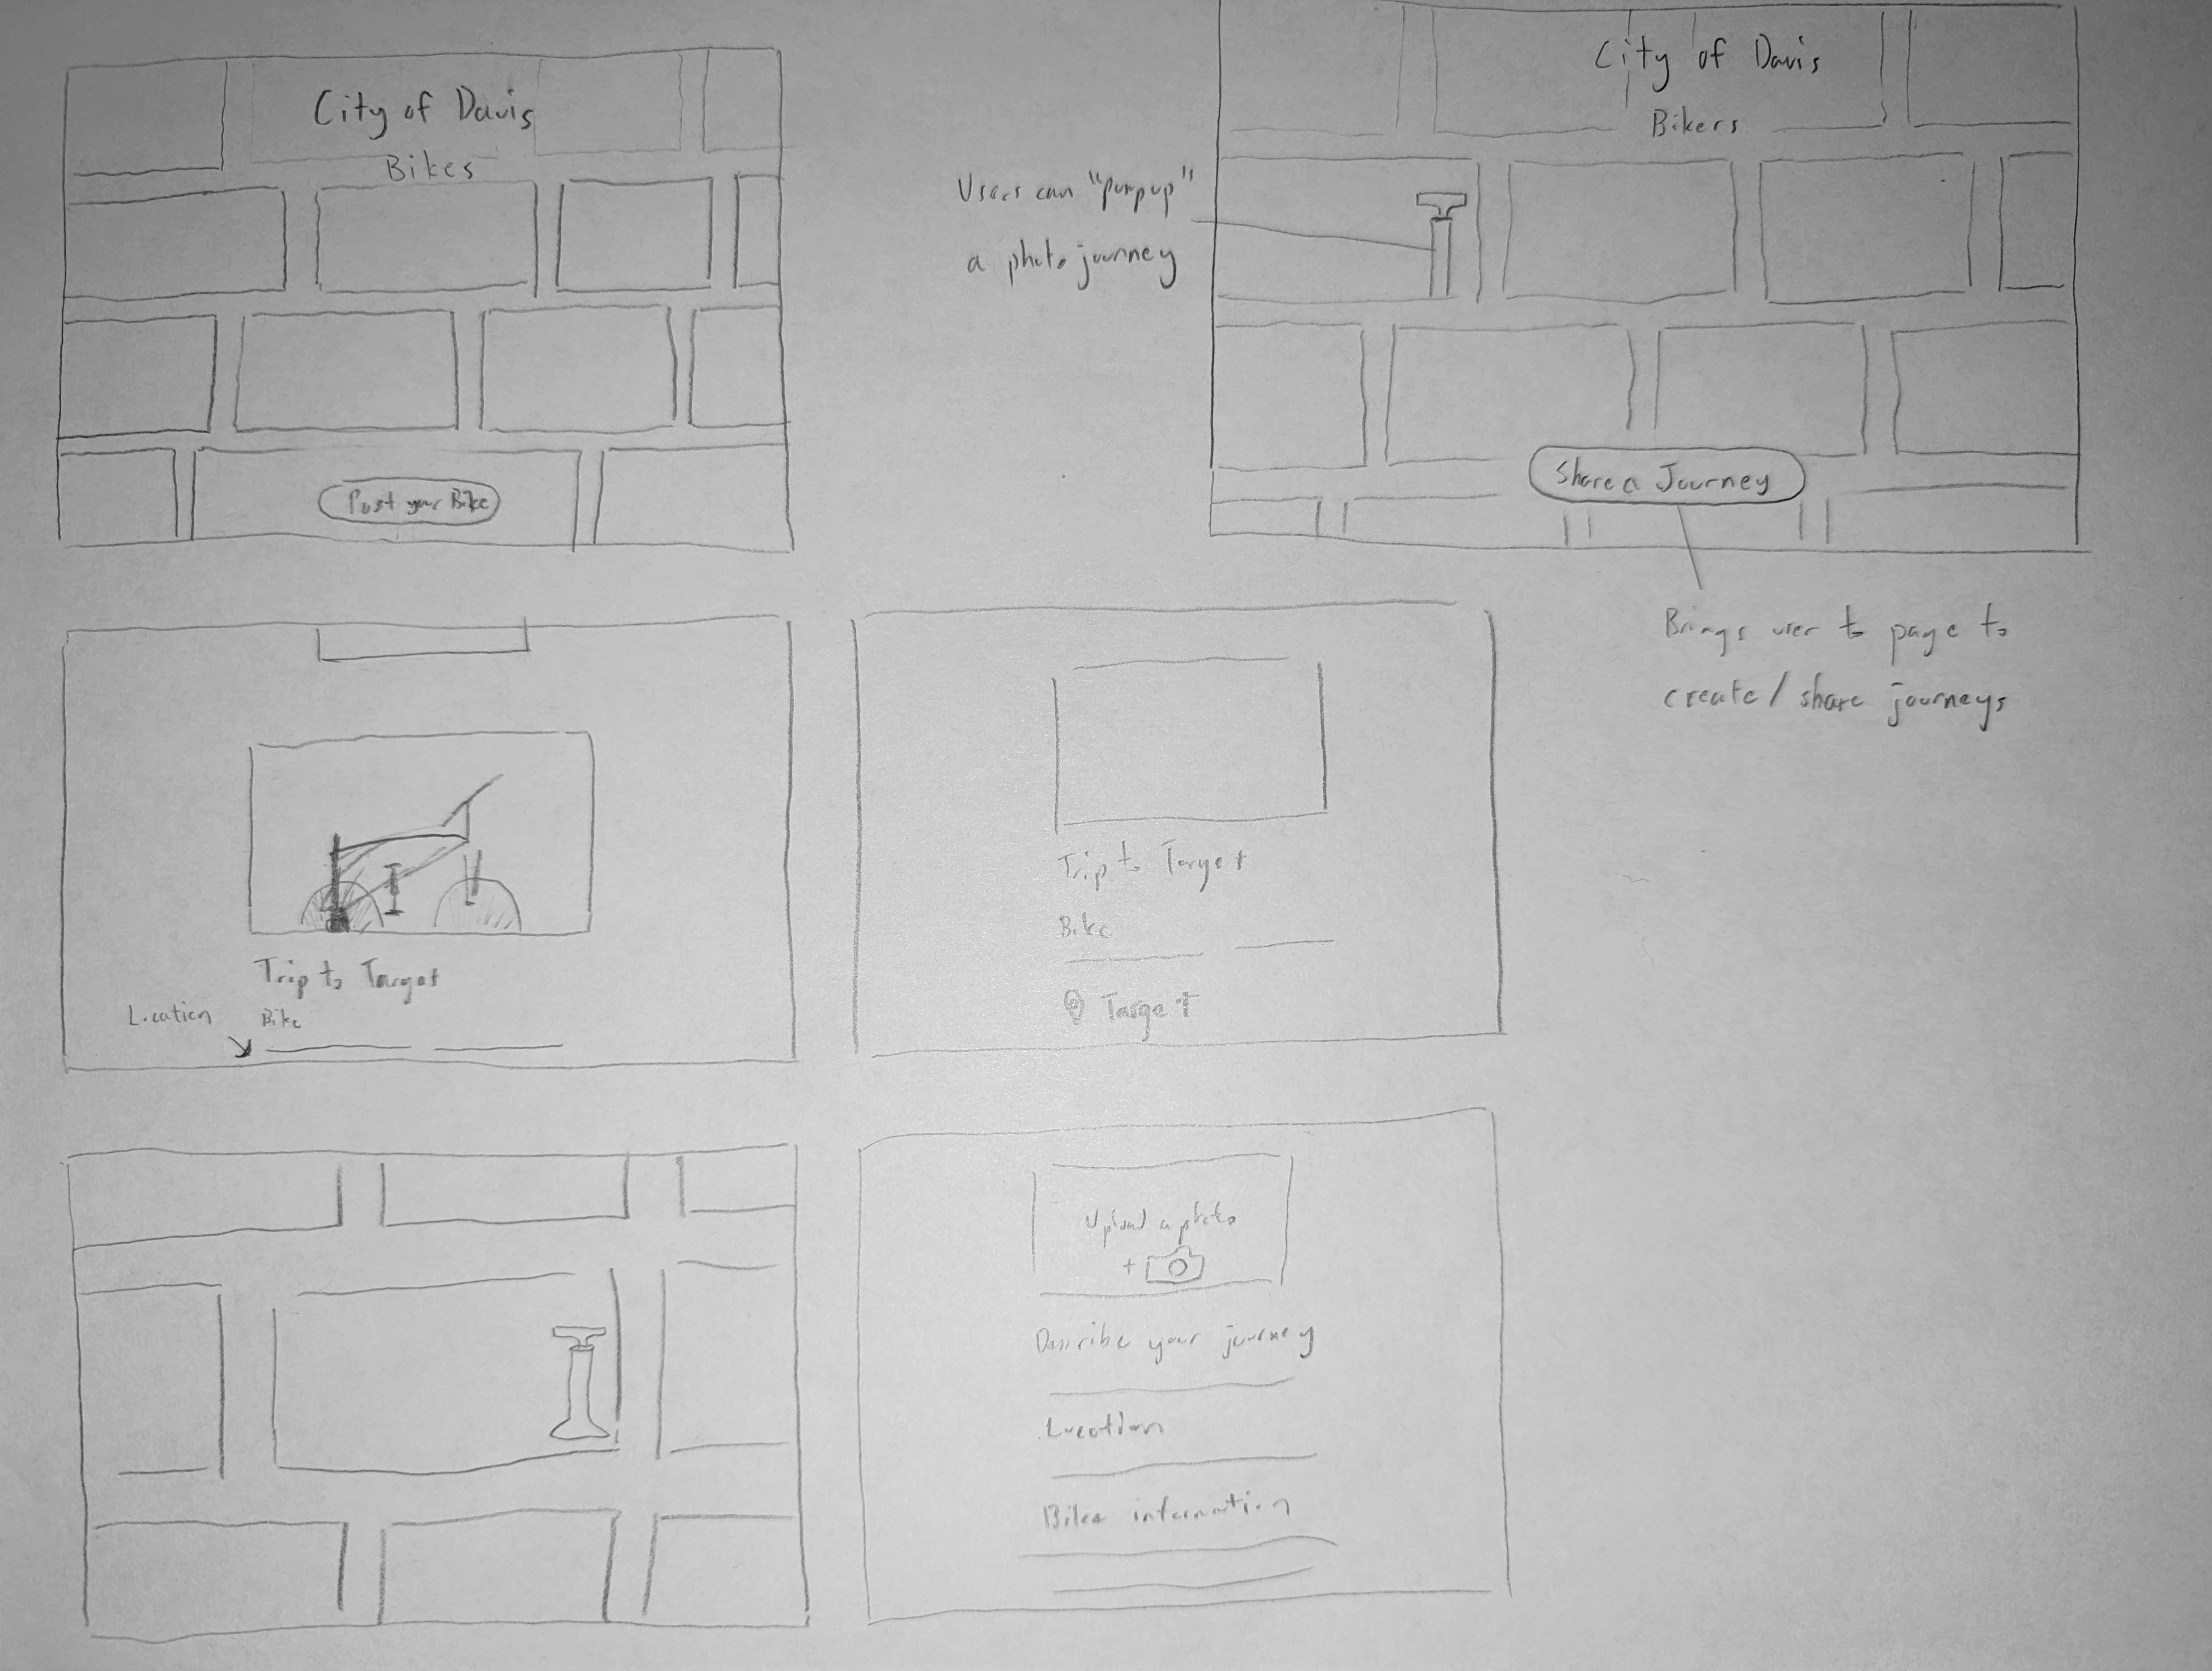 City of Davis
Bikes
Post your Bike
Users can "pumpup"
a photo journey
City of Davis
Bikers
Share a Journey
Brings user to page to
create / share journeys
Trip to Target
Location
Bike
Trip to Target
Bike
Target
Upload a photo
+
Describe your journey
Location
Bike information